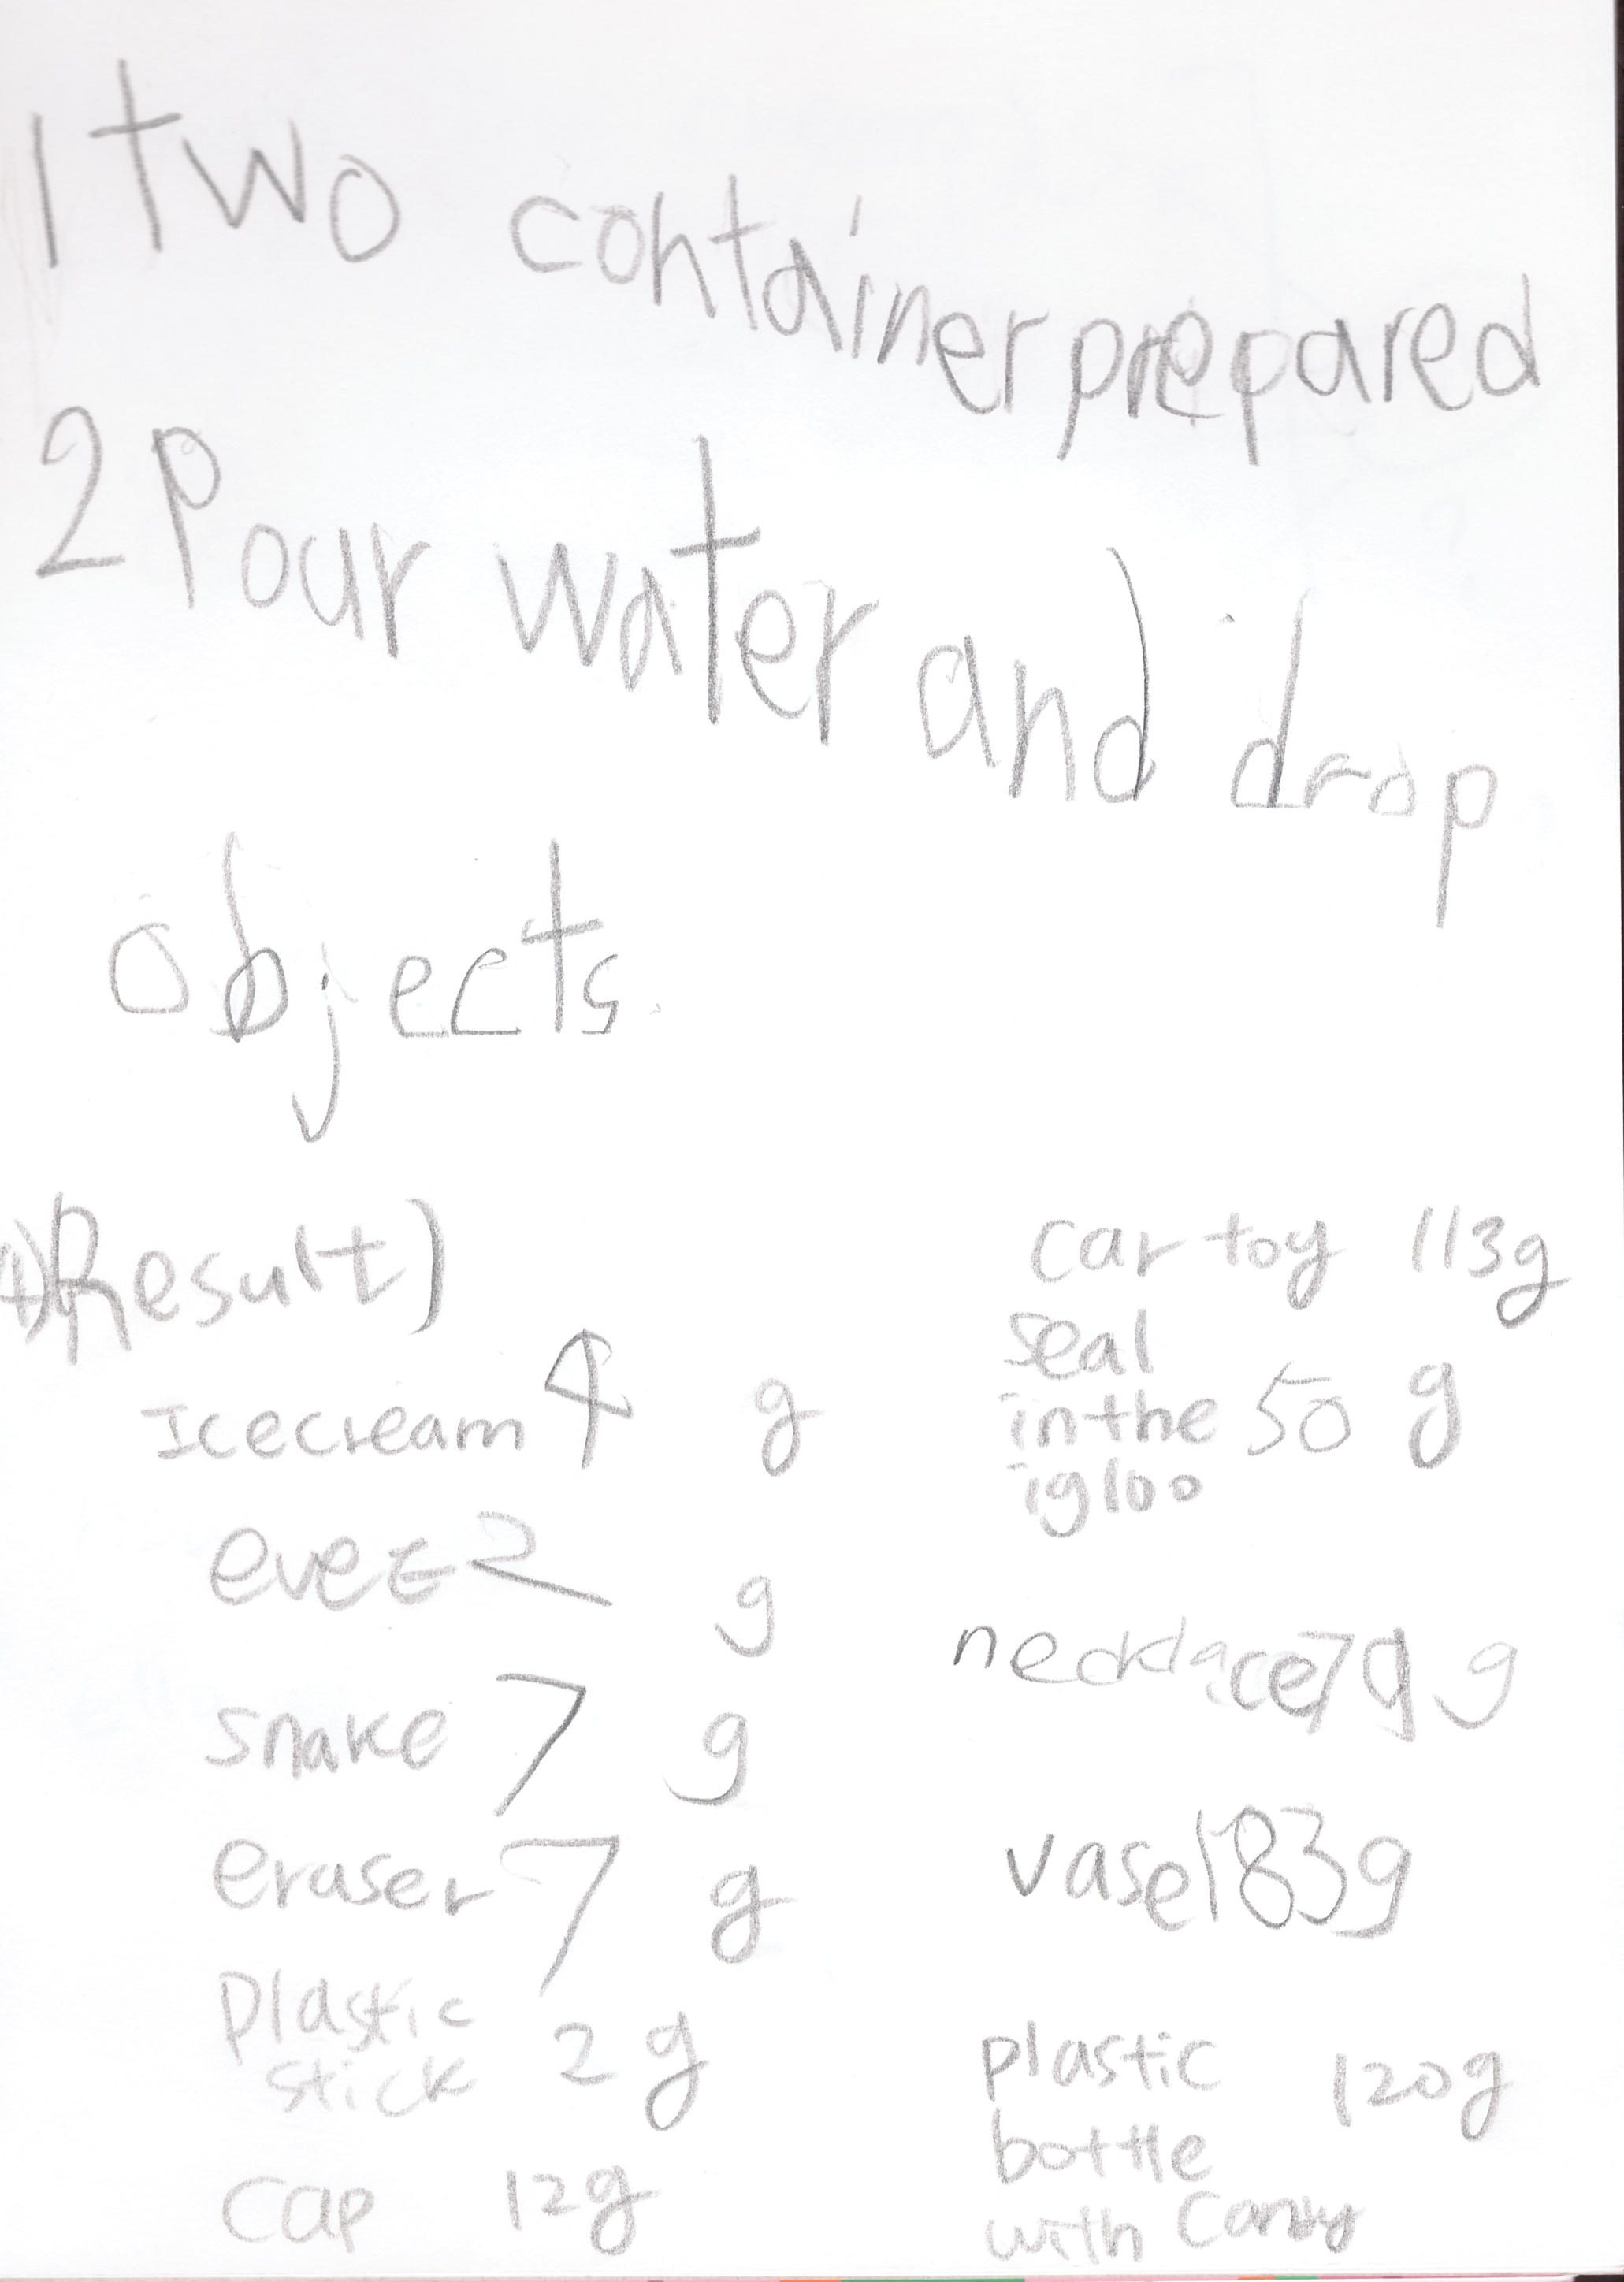 1 Two container prepared
2 Pour water and drop
objects.
4) Result)
Icecream 4 g
evee 2 g
snake 7 g
eraser 7 g
plastic
stick 2 g
cap 12g
car toy 113g
seal
in the 50 g
igloo
necklace 79 g
vase 183g
plastic 120g
bottle
with Candy